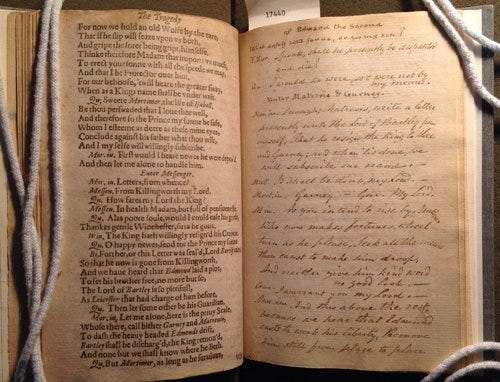 The Tragedy
For now we hold an old Wolfe by the eare,
That if he slip will seaze upon us both,
And gripe the sorer being gript himselfe.
Thinke therefore Madam that imports us much,
To erect your sonne with all the speede we may,
And that I be Protector over him,
For our behoofe, 'twill beare the greater sway,
When as a Kings name shall be under writ.
Qu. Sweete Mortimer, the life of Isabel,
Be thou perswaded that I love thee well,
And therefore so the Prince my sonne be safe,
Whom I esteeme as deere as these mine eyes,
Conclude against his father what thou wilt,
And I my selfe will willingly subscribe.
Mor. iu. First would I heare newes he were
And then let me alone to handle him.
Enter Messenger.
Mor. iu. Letters, from whence?
Messen. From Killingworth my Lord.
Qu. How fares my Lord the King?
Messen. In health Madam, but full of pensivenesse.
Qu. Alas poore soule, would I could ease his
Thankes gentle Winchester, sirra be gone.
Win. The King hath willingly resign'd his Crowne.
Qu. O happy newes, send for the Prince my sonne
Bi. Further, or this Letter was seal'd, Lord
So that he now is gone from Killingworth,
And we have heard that Edmund laid a plot,
To set his brother free, no more but so,
The Lord of Bartley is so pitifull,
As Leicester that had charge of him before.
Qu. Then let some other be his Guardian.
Mor. iu. Let me alone, here is the privy Seale,
Whose there, call hither Gurney and Matrevis,
To dash the heavy headed Edmunds drift,
Bartley shall be discharg'd, the King remov'd,
And none but we shall know where he lieth.
Qu. But Mortimer, as long as he survives,
17440
of Edward the Second
What safety rests for us, or for my son?
Speak, shall he presently be dispatch'd
and die?
I would he were, so it were not by
my means.
Enter Matrevis & Gurney.
Matrevis, write a letter
presently unto the lord of Bartley from
ourself, That he resign the King to thee
and Gurney; and when 'tis done, we
will subscribe our name.
Mat. It shall be done, my Lord.
Gurney. My Lord
As you intend to rise by
Who now makes fortune's wheel
turn as he please, Seek all the means
thou canst to make him droop,
And neither give him kind word
nor good look.
I warrant you my Lord.
And this above the rest,
because we hear that Edmund
casts to work his liberty, Remove
him still from place to place